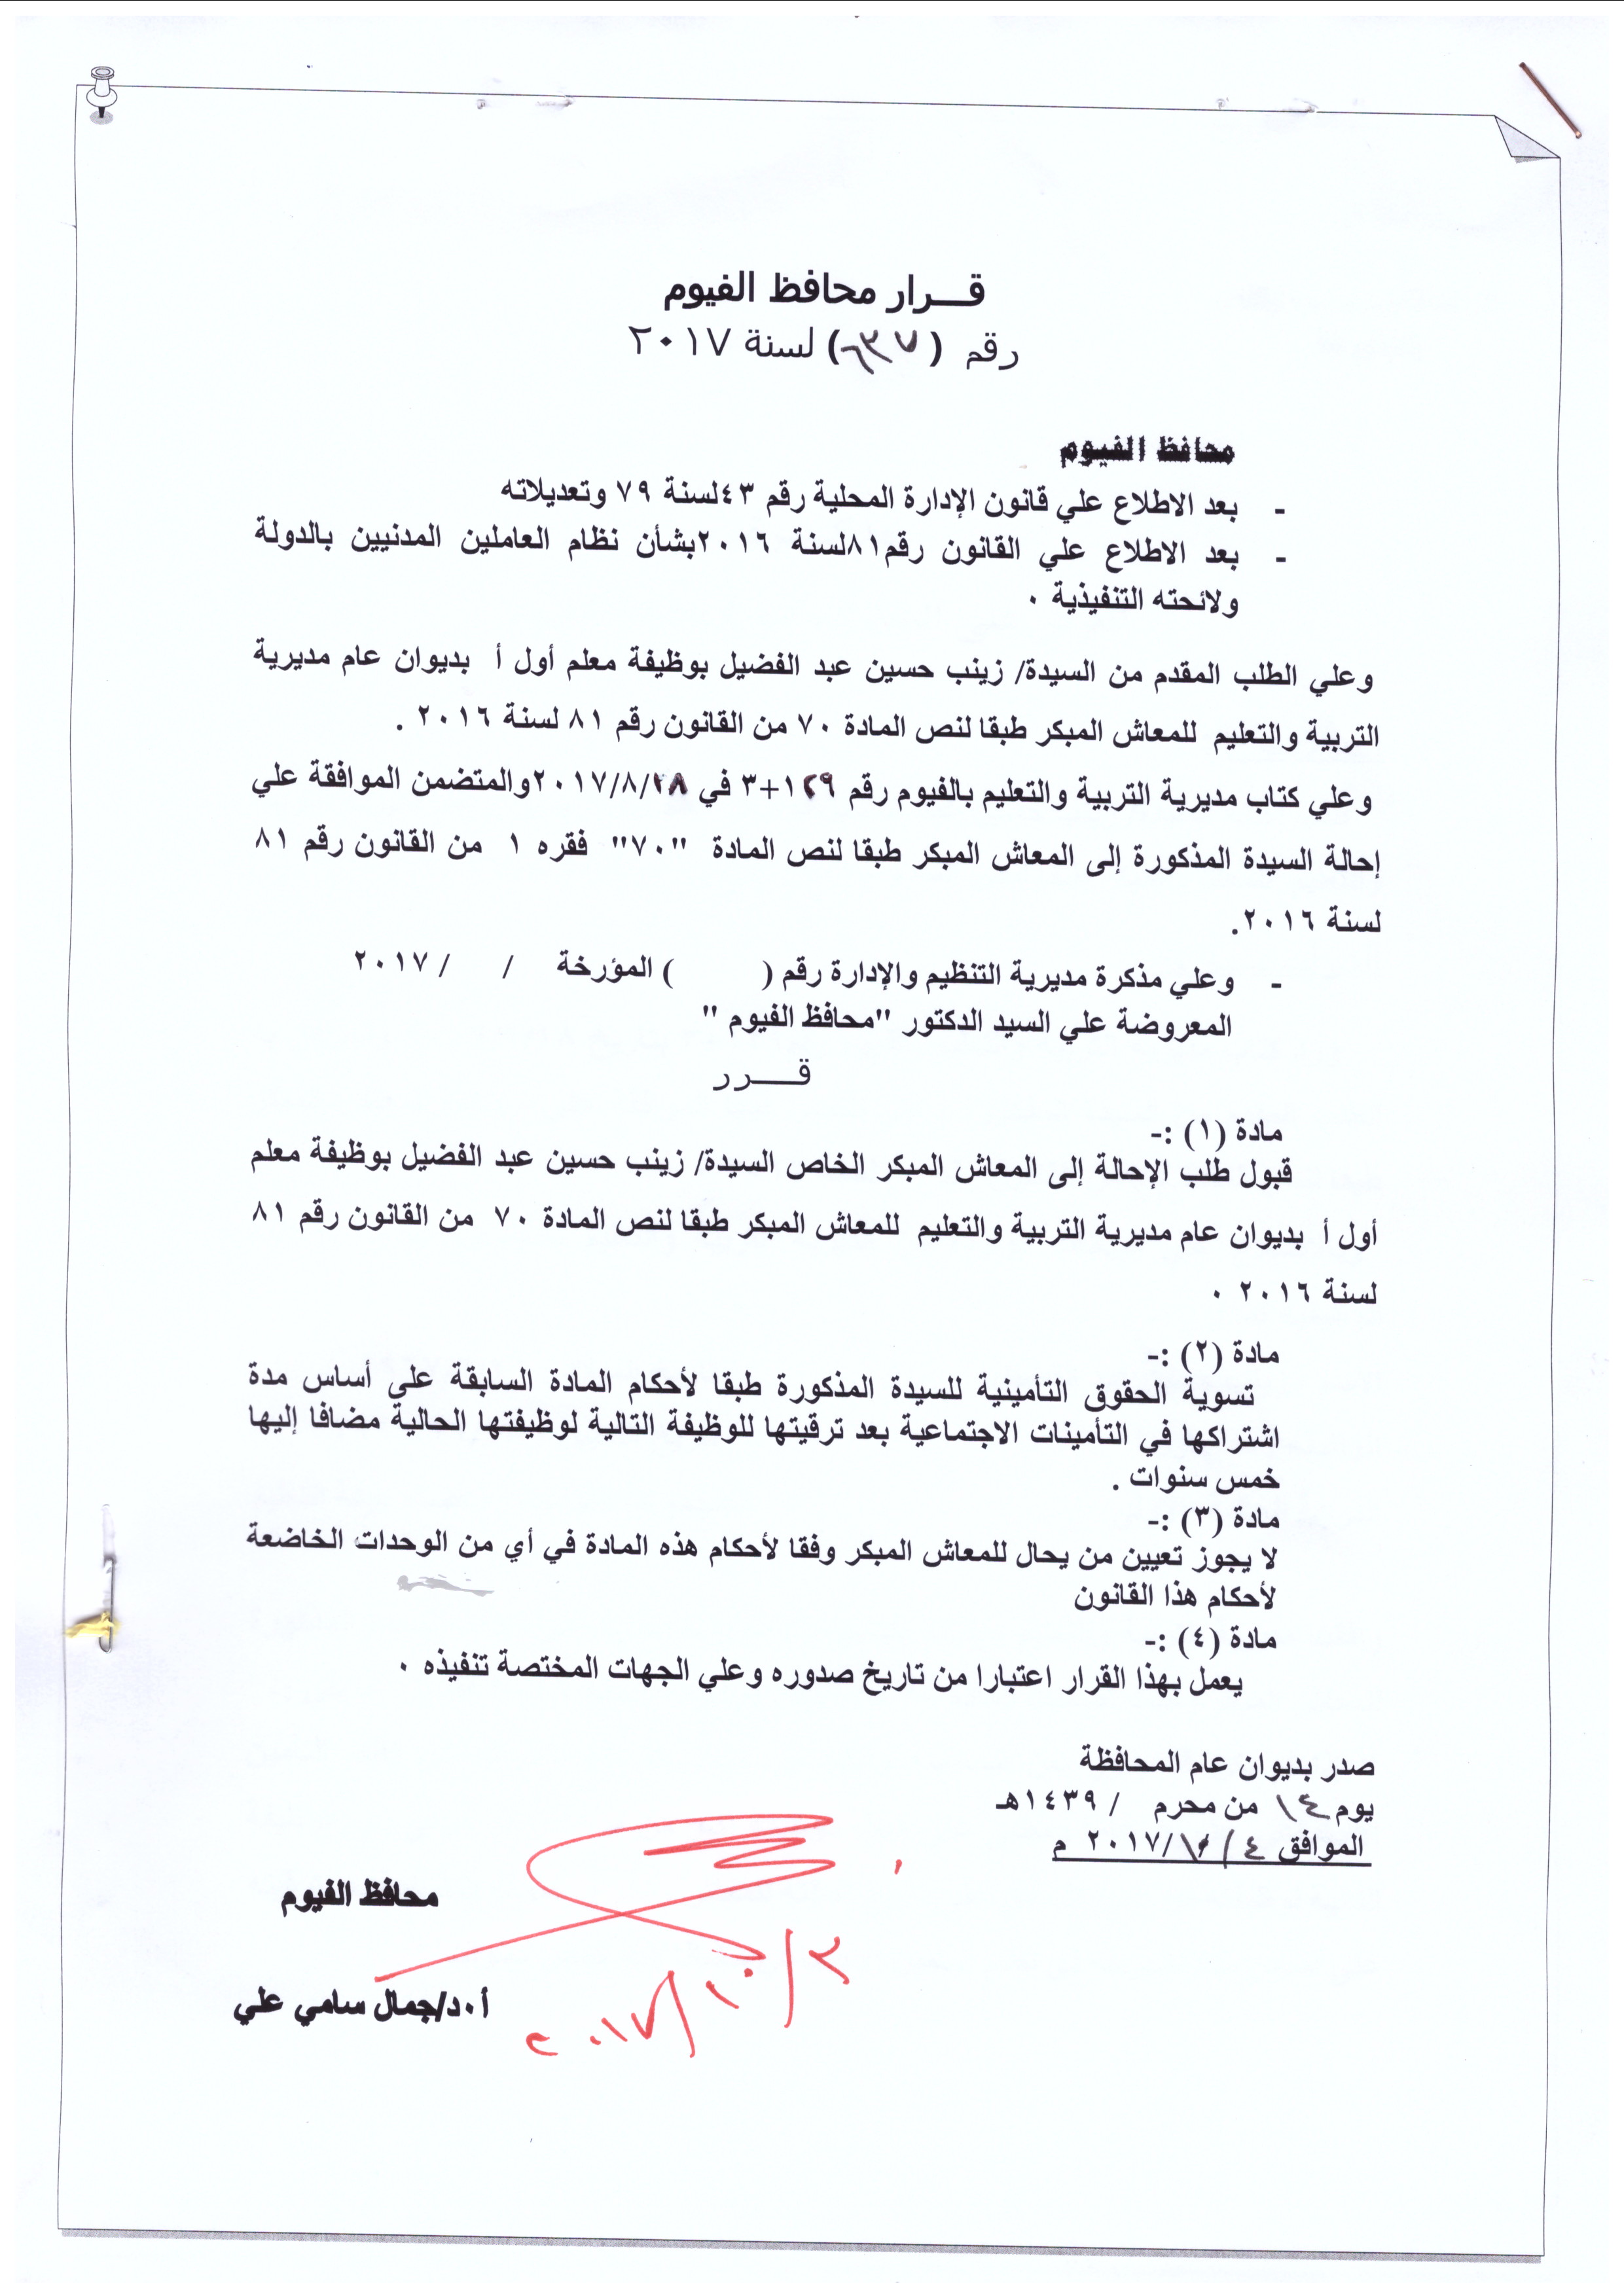 قـــرار محافظ الفيوم
رقم ( ٦٣٧ ) لسنة ٢٠١٧
محافظ الفيوم
- بعد الاطلاع علي قانون الإدارة المحلية رقم ٤٣لسنة ٧٩ وتعديلاته
- بعد الاطلاع علي القانون رقم٨١لسنة ٢٠١٦بشأن نظام العاملين المدنيين بالدولة
ولائحته التنفيذية ٠
وعلي الطلب المقدم من السيدة/ زينب حسين عبد الفضيل بوظيفة معلم أول أ بديوان عام مديرية
التربية والتعليم للمعاش المبكر طبقا لنص المادة ٧٠ من القانون رقم ٨١ لسنة ٢٠١٦ .
وعلي كتاب مديرية التربية والتعليم بالفيوم رقم ١٢٩+٣ في ٢٠١٧/٨/٢٨والمتضمن الموافقة علي
إحالة السيدة المذكورة إلى المعاش المبكر طبقا لنص المادة "٧٠" فقره ١ من القانون رقم ٨١
لسنة ٢٠١٦.
- وعلي مذكرة مديرية التنظيم والإدارة رقم ( ) المؤرخة / / ٢٠١٧
المعروضة علي السيد الدكتور "محافظ الفيوم "
قـــرر
مادة (١) :-
قبول طلب الإحالة إلى المعاش المبكر الخاص السيدة/ زينب حسين عبد الفضيل بوظيفة معلم
أول أ بديوان عام مديرية التربية والتعليم للمعاش المبكر طبقا لنص المادة ٧٠ من القانون رقم ٨١
لسنة ٢٠١٦ ٠
مادة (٢) :-
تسوية الحقوق التأمينية للسيدة المذكورة طبقا لأحكام المادة السابقة على أساس مدة
اشتراكها في التأمينات الاجتماعية بعد ترقيتها للوظيفة التالية لوظيفتها الحالية مضافا إليها
خمس سنوات .
مادة (٣) :-
لا يجوز تعيين من يحال للمعاش المبكر وفقا لأحكام هذه المادة في أي من الوحدات الخاضعة
لأحكام هذا القانون
مادة (٤) :-
يعمل بهذا القرار اعتبارا من تاريخ صدوره وعلي الجهات المختصة تنفيذه ٠
صدر بديوان عام المحافظة
يوم ١٤ من محرم / ١٤٣٩هـ
الموافق ٤ / ١٠/ ٢٠١٧ م
محافظ الفيوم
٢٠١٧/١٠/٢
أ٠د/جمال سامي علي